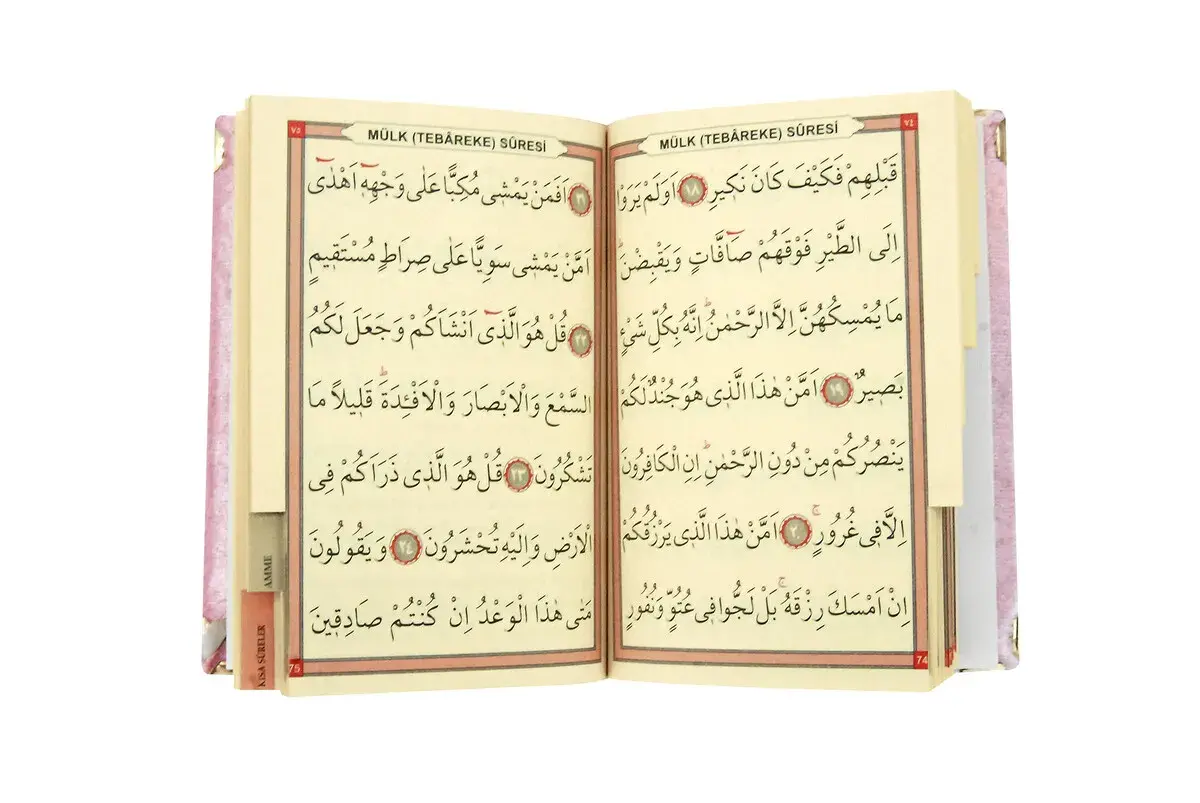 ٧٤
MÜLK (TEBÂREKE) SÛRESİ
قَبْلِهِمْ فَكَيْفَ كَانَ نَكٖيرِ ١٨ اَوَلَمْ يَرَوْا
اِلَى الطَّيْرِ فَوْقَهُمْ صَٓافَّاتٍ وَيَقْبِضْنَۜ
مَا يُمْسِكُهُنَّ اِلَّا الرَّحْمٰنُۜ اِنَّهُ بِكُلِّ شَیْءٍ
بَصٖيرٌ ١٩ اَمَّنْ هٰذَا الَّذٖى هُوَ جُنْدٌ لَكُمْ
يَنْصُرُكُمْ مِنْ دُونِ الرَّحْمٰنِۜ اِنِ الْكَافِرُونَ
اِلَّا فٖى غُرُورٍۚ ٢٠ اَمَّنْ هٰذَا الَّذٖى يَرْزُقُكُمْ
اِنْ اَمْسَكَ رِزْقَهُۚ بَلْ لَجُّوا فٖى عُتُوٍّ وَنُفُورٍ
74
٧٥
MÜLK (TEBÂREKE) SÛRESİ
٢١ اَفَمَنْ يَمْشٖى مُكِبًّا عَلٰى وَجْهِهٖٓ اَهْدٰٓى
اَمَّنْ يَمْشٖى سَوِيًّا عَلٰى صِرَاطٍ مُسْتَقٖيمٍ
٢٢ قُلْ هُوَ الَّذٖٓى اَنْشَاَكُمْ وَجَعَلَ لَكُمُ
السَّمْعَ وَالْاَبْصَارَ وَالْاَفْـِٔدَةَۜ قَلٖيلاً مَا
تَشْكُرُونَ ٢٣ قُلْ هُوَ الَّذٖى ذَرَاَكُمْ فِى
الْاَرْضِ وَاِلَيْهِ تُحْشَرُونَ ٢٤ وَيَقُولُونَ
مَتٰى هٰذَا الْوَعْدُ اِنْ كُنْتُمْ صَادِقٖينَ
75
AMME
KISA SÛRELER